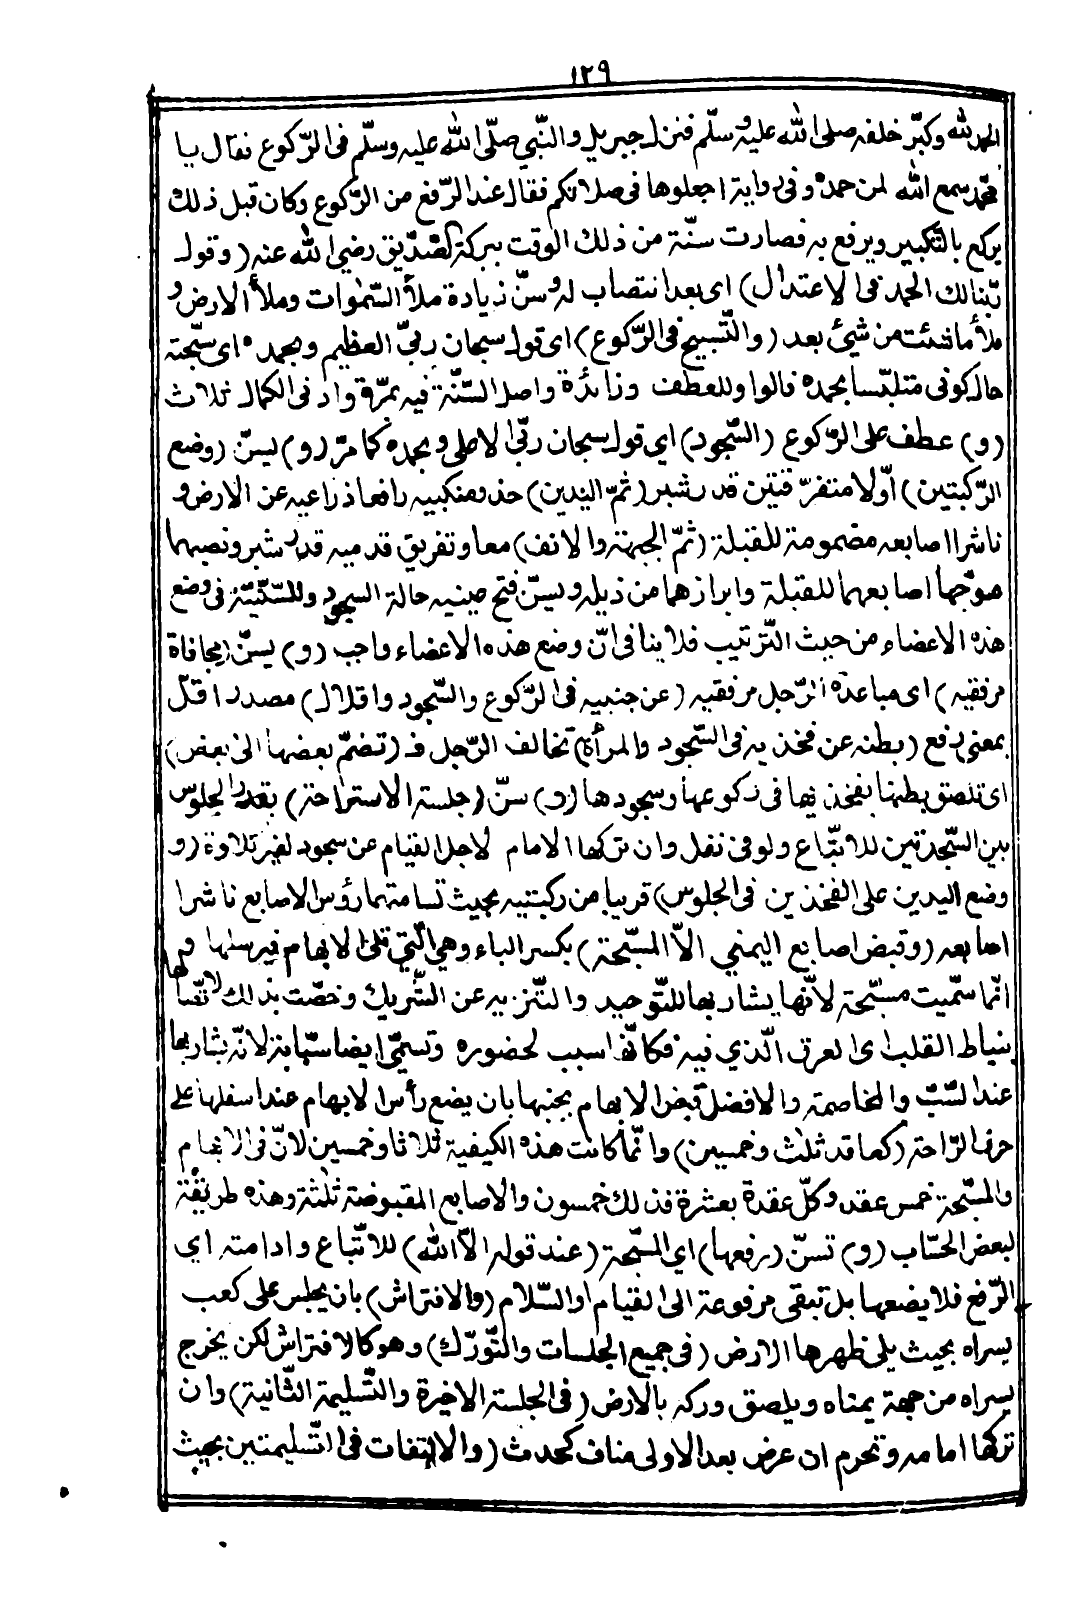 ١٢٩
الحمد لله وكبّر خلفه صلى الله عليه وسلّم فنزل جبريل والنّبي صلّى الله عليه وسلّم فى الرّكوع فقال يا
محمّد سمع الله لمن حمده وفى رواية اجعلوها فى صلاتكم فقال عند الرّفع من الرّكوع وكان قبل ذلك
يركع بالتّكبير ويرفع به فصارت سنّة من ذلك الوقت ببركة الصّدّيق رضي الله عنه (وقوله
ربّنا لك الحمد فى الاعتدال) اى بعد انتصاب له وسنّ زيادة ملأ السّموات وملأ الارض و
ملأ ما شئت من شيئ بعد (والتّسبيح فى الرّكوع) اى قوله سبحان ربّي العظيم وبحمده اى سبّحته
حال كونى متلبّسا بحمده فالواو للعطف وزائدة واصل السّنّة فيه بمرّة واد فى الكمال ثلاث
(و) عطف على الرّكوع (السّجود) اي قوله سبحان ربّي الاعلى وبحمده كما مرّ (و) ليسنّ (وضع
الرّكبتين) اوّلا متفرّقتين قدر شبر (ثمّ اليدين) حذو منكبيه رافعا ذراعيه عن الارض و
ناشرا اصابعه مضمومة للقبلة (ثمّ الجبهة والانف) معا وتفريق قدميه قدر شبر ونصبهما
موّجها اصابعهما للقبلة وابرازهما من ذيله وليسنّ فتح عينيه حالة السجود وللسّنّيّة فى وضع
هذه الاعضاء من حيث التّرتيب فلا ينافى انّ وضع هذه الاعضاء واجب (و) يسنّ (مجافاة
مرفقيه) اى مباعدة الرّجل مرفقيه (عن جنبيه فى الرّكوع والسّجود واقلال) مصدر اقلّ
بمعنى رفع (بطنه عن فخذيه فى السّجود والمرأة) تخالف الرّجل فـ (تضمّ بعضها الى بعض)
اى تلصق بطنها بفخذيها فى ركوعها وسجودها (و) سنّ (جلسة الاستراحة) بقدر الجلوس
بين السّجدتين للاتّباع ولو فى نفل وان تركها الامام لاجل القيام عن سجود لغير تلاوة (و
وضع اليدين على الفخذين فى الجلوس) قريبا من ركبتيه بحيث تسامتهما رؤس الاصابع ناشرا
اصابعه (وقبض اصابع اليمني الاّ المسبّحة) بكسر الباء وهي الّتي تلى الابهام فيرسلها و
انّما سمّيت مسبّحة لانّها يشار بها للتّوحيد والتّنزيه عن الشّريك وخصّت بذلك لاتّصالها
بنياط القلب اى العرق الّذي فيه فكانّها سبب لحضوره وتسمّى ايضا سبّابة لانّه يشار بها
عند السّبّ والمخاصمة والافضل قبض الابهام بجنبها بان يضع رأس الابهام عند اسفلها على
حرف الرّاحة (كعاقد ثلث وخمسين) وانّما كانت هذه الكيفية ثلاثا وخمسين لانّ فى الابهام
والمسبّحة خمس عقد وكلّ عقدة بعشرة فذلك خمسون والاصابع المقبوضة ثلثة وهذه طريقة
لبعض الحسّاب (و) تسنّ (رفعها) اي المسبّحة (عند قوله الاّ الله) للاتّباع وادامته اي
الرّفع فلا يضعها بل تبقى مرفوعة الى القيام او السّلام (والافتراش) بان يجلس على كعب
يسراه بحيث يلى ظهرها الارض (فى جميع الجلسات والتّورّك) وهو كالافتراش لكن يخرج
يسراه من جهة يمناه ويلصق وركه بالارض (فى الجلسة الاخيرة والتّسليمة الثّانية) وان
تركها امامه وتحرم ان عرض بعد الاولى مناف كحدث (والالتفات فى التّسليمتين بحيث